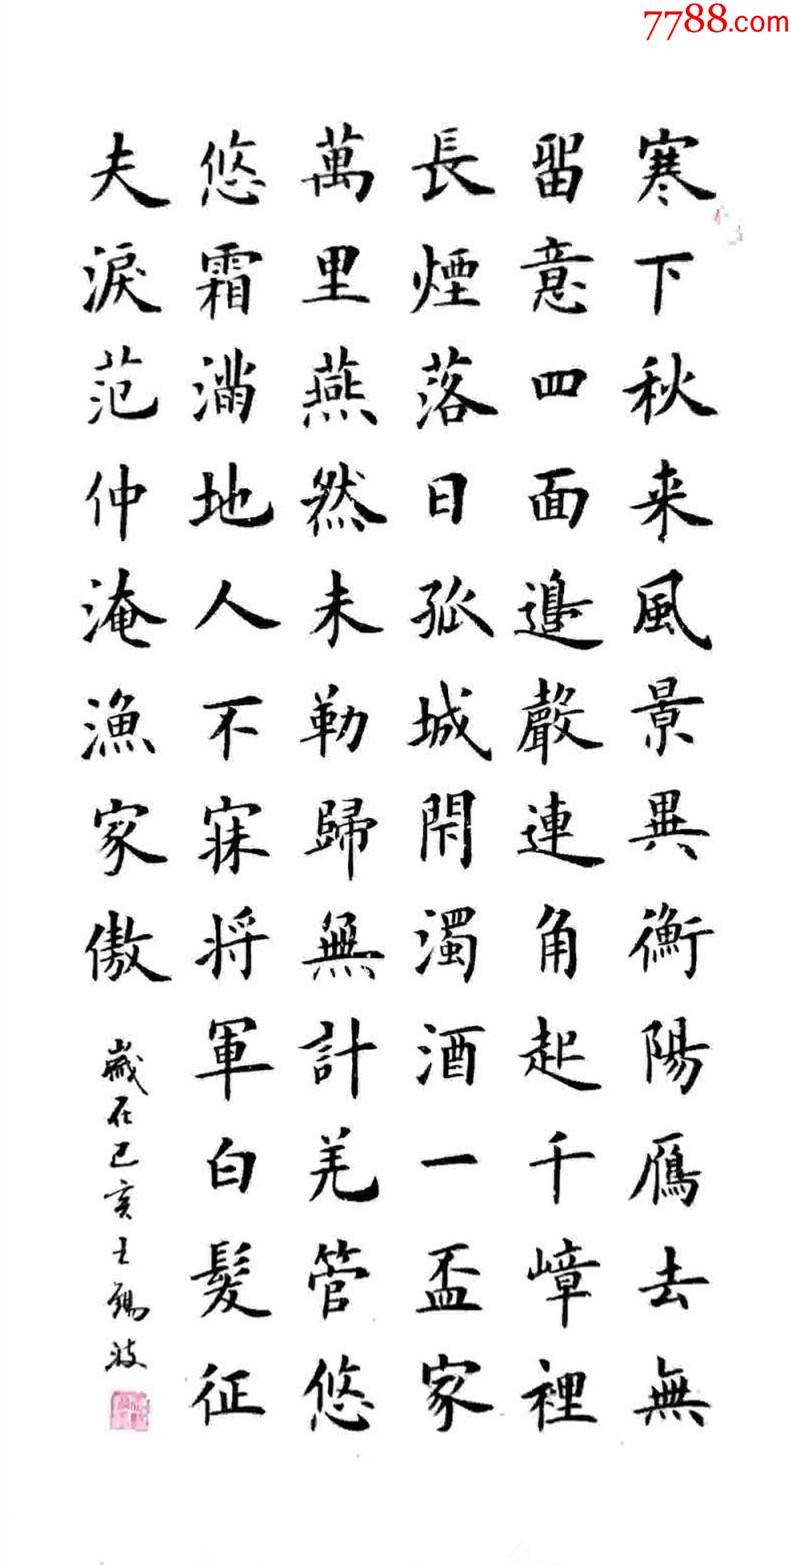 7788.com
寒下秋来風景異衡陽鴈去無
留意四面邊聲連角起千嶂裡
長煙落日孤城閇濁酒一盃家
萬里燕然未勒歸無計羌管悠
悠霜滿地人不寐将軍白髮征
夫淚范仲淹漁家傲
歲在己亥王波